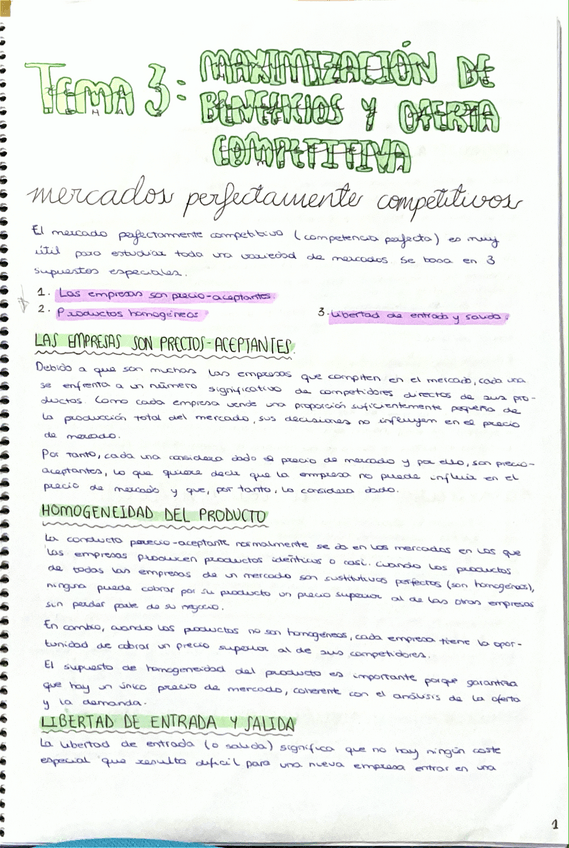 TEMA 3: MAXIMIZACIÓN DE
BENEFICIOS Y OFERTA
COMPETITIVA
mercados perfectamente competitivos
El mercado perfectamente competitivo (competencia perfecta) es muy
útil para estudiar toda una variedad de mercados. Se basa en 3
supuestos especiales.
1. Las empresas son precio-aceptantes.
2. Productos homogéneos
3. Libertad de entrada y salida.
LAS EMPRESAS SON PRECIOS-ACEPTANTES
Debido a que son muchas las empresas que compiten en el mercado, cada una
se enfrenta a un número significativo de competidores directos de sus pro-
ductos. Como cada empresa vende una proporción suficientemente pequeña de
la producción total del mercado, sus decisiones no influyen en el precio
de mercado.
Por tanto, cada una considera dado el precio de mercado y por ello, son precio-
aceptantes, lo que quiere decir que la empresa no puede influir en el
precio de mercado y que, por tanto, lo considera dado.
HOMOGENEIDAD DEL PRODUCTO
La conducta precio-aceptante normalmente se da en los mercados en los que
las empresas producen productos idénticos o casi. Cuando los productos
de todas las empresas de un mercado son sustitutivos perfectos (son homogéneos),
ninguna puede cobrar por su producto un precio superior al de las otras empresas
sin perder parte de su negocio.
En cambio, cuando los productos no son homogéneos, cada empresa tiene la opor-
tunidad de cobrar un precio superior al de sus competidores.
El supuesto de homogeneidad del producto es importante porque garantiza
que hay un único precio de mercado, coherente con el análisis de la oferta
y la demanda.
LIBERTAD DE ENTRADA Y SALIDA
La libertad de entrada (o salida) significa que no hay ningún coste
especial que resulta difícil para una nueva empresa entrar en una
1